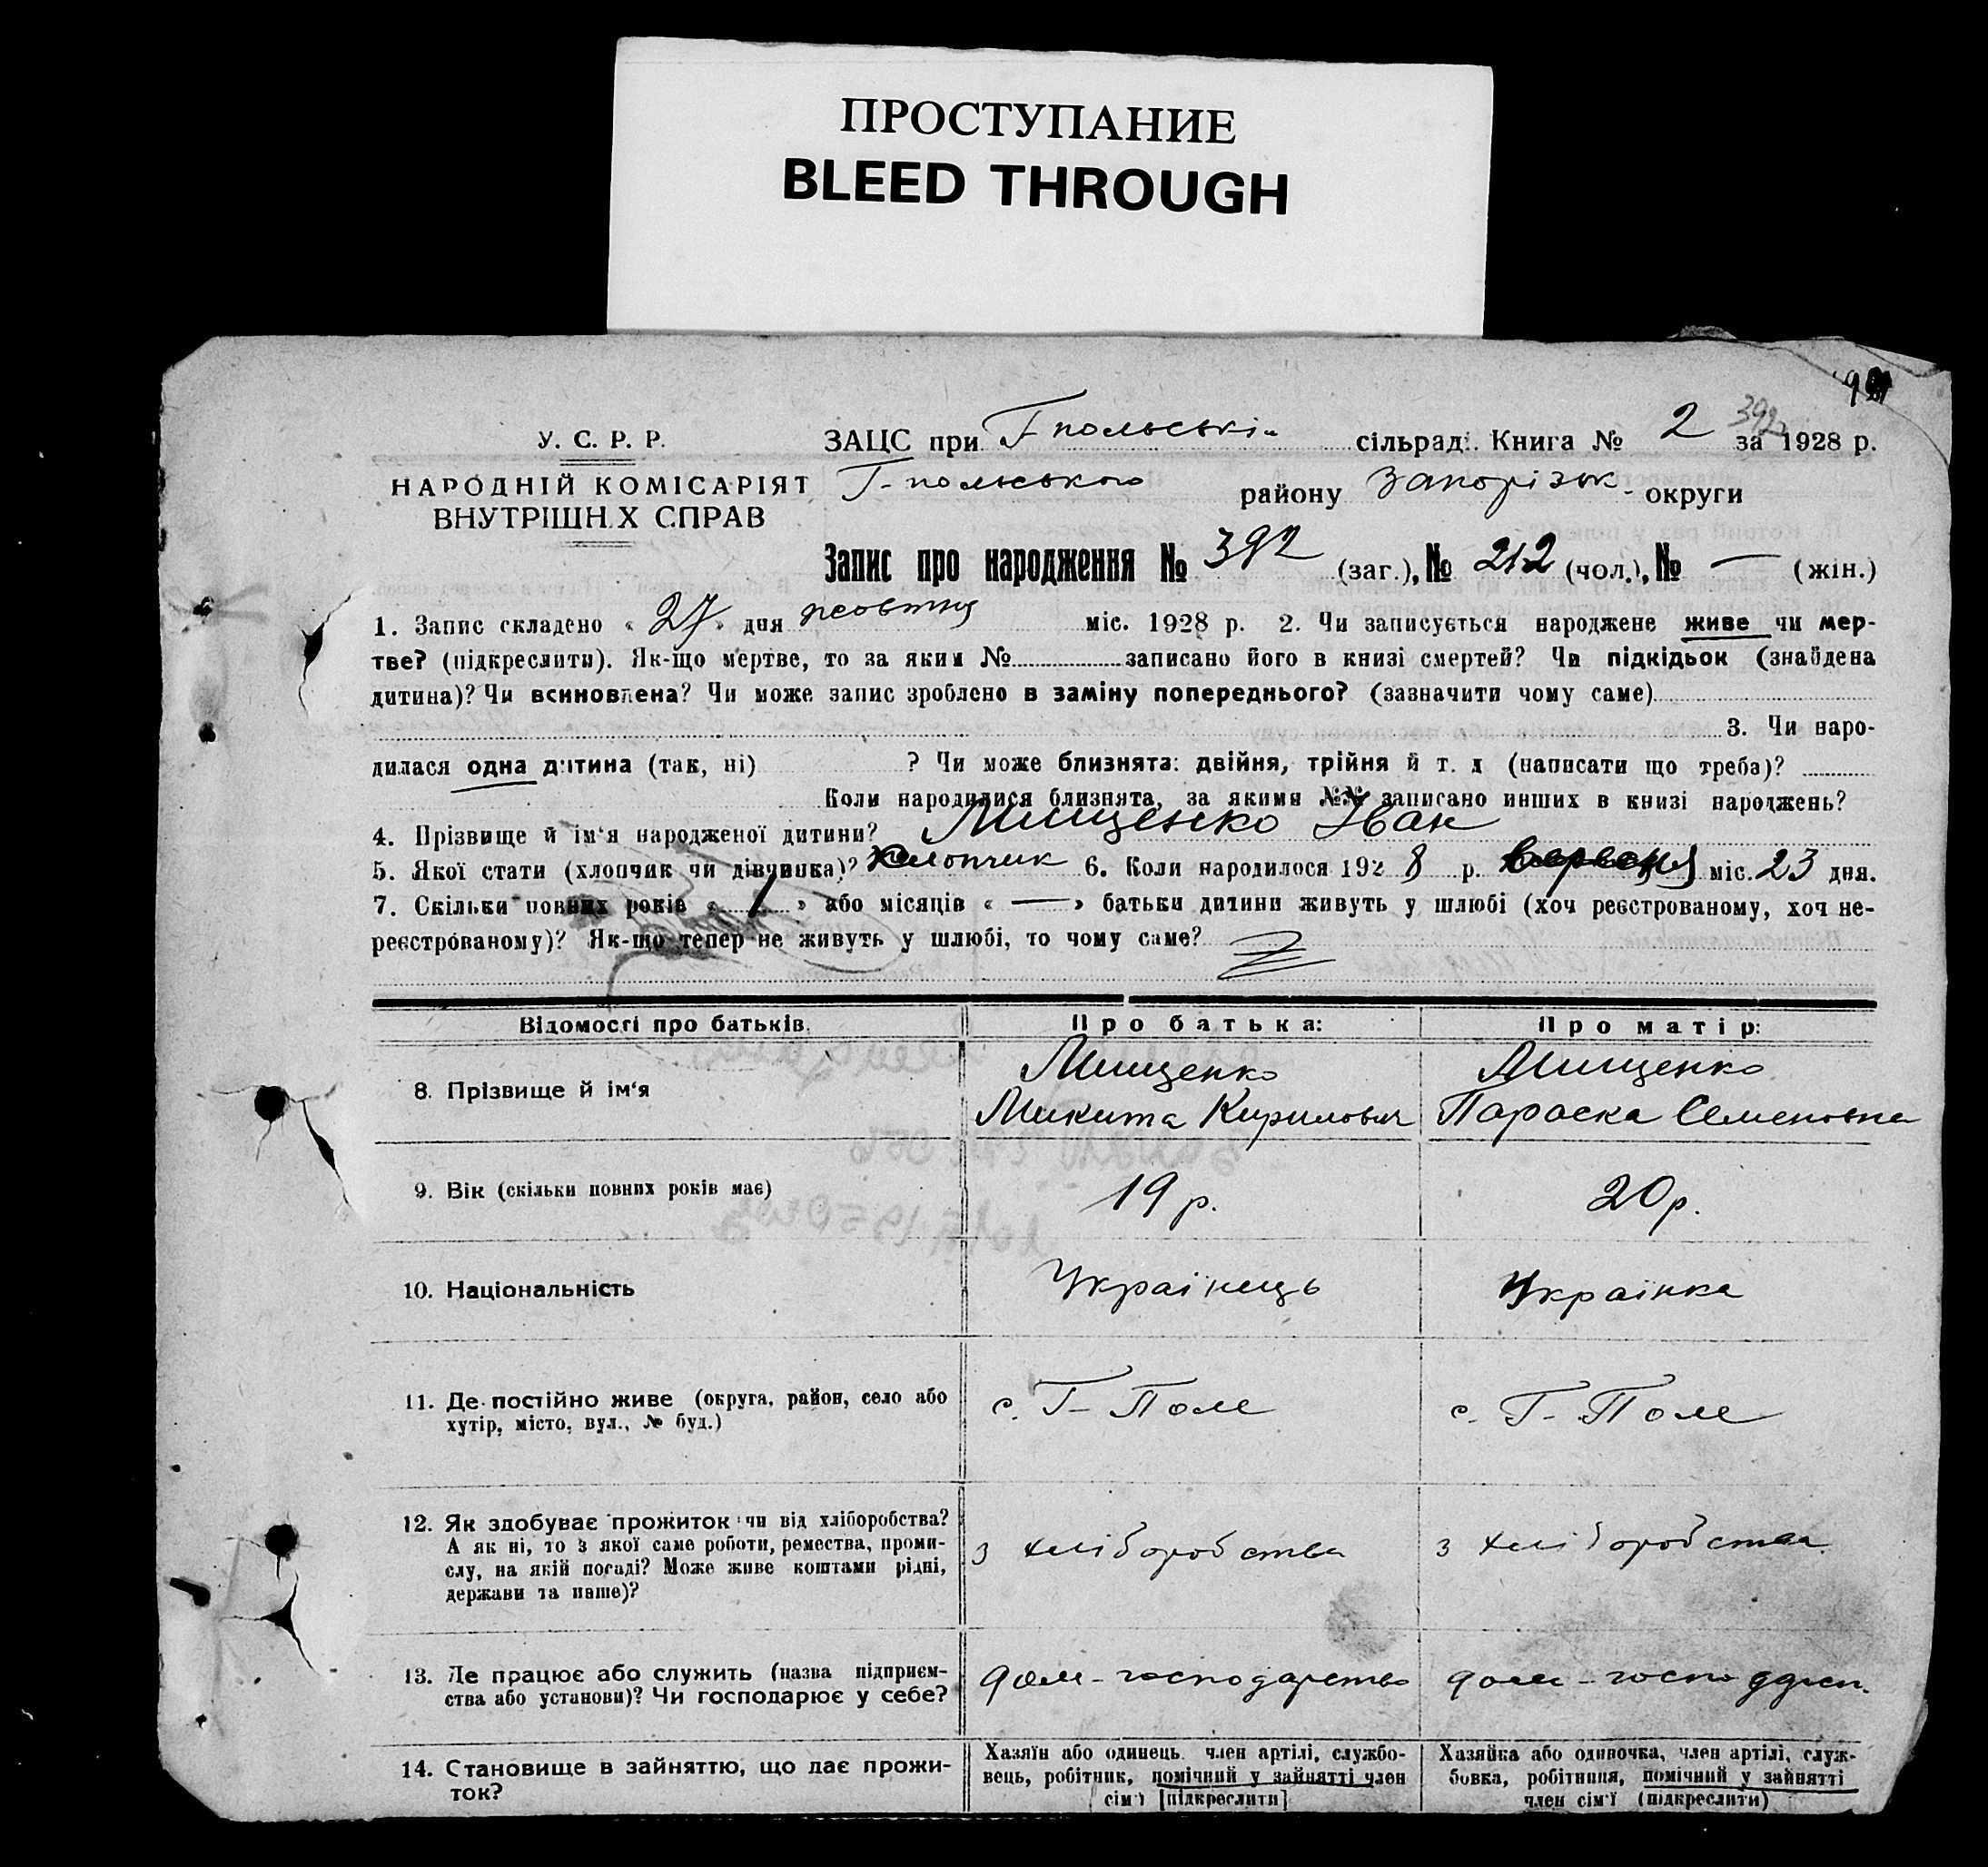 ПРОСТУПАНИЕ
BLEED THROUGH
392
У. С. Р. Р.
НАРОДНІЙ КОМІСАРІЯТ
ВНУТРІШН.Х СПРАВ
ЗАЦС при Г польські сільрад. Книга № 2 за 1928 р.
Г-польського району Запорізьк. округи
Запис про народження № 392 (заг.), № 212 (чол.), № — (жін.)
1. Запис складено « 27 » дня жовтня міс. 1928 р. 2. Чи записується народжене живе чи мер-
тве? (підкреслити). Як-що мертве, то за яким № записано його в книзі смертей? Чи підкідьок (знайдена
дитина)? Чи всиновлена? Чи може запис зроблено в заміну попереднього? (зазначити чому саме)
3. Чи наро-
дилася одна дитина (так, ні) ? Чи може близнята: двійня, трійня й т. д (написати що треба)?
Коли народилися близнята, за якими №№ записано инших в книзі народжень?
4. Прізвище й ім'я народженої дитини? Мищенко Іван
5. Якої стати (хлопчик чи дівчинка)? хлопчик 6. Коли народилося 1928 р. вересня міс. 23 дня.
7. Скільки повних років « 1 » або місяців « — » батьки дитини живуть у шлюбі (хоч реєстрованому, хоч не-
реєстрованому)? Як-що тепер не живуть у шлюбі, то чому саме?
Відомості про батьків. Про батька: Про матір:
8. Прізвище й ім'я
Мищенко
Микита Кирилович
Мищенко
Параска Семеновна
9. Вік (скільки повних років має) 19 р. 20 р.
10. Національність Українець Українка
11. Де постійно живе (округа, район, село або
хутір, місто, вул., № буд.)
с. Г-Поле
с. Г-Поле
12. Як здобуває прожиток чи від хліборобства?
А як ні, то з якої саме роботи, ремества, проми-
слу, на якій посаді? Може живе коштами рідні,
держави та инше)?
з хліборобства
з хліборобства
13. Де працює або служить (назва підприєм-
ства або установи)? Чи господарює у себе?
дом-господарство
дом-господарст.
14. Становище в зайняттю, що дає прожи-
ток?
Хазяїн або одинець член артілі, службо-
вець, робітник, помічний у зайнятті член
сім'ї [підкреслити]
Хазяйка або одиночка, член артілі, служ-
бовка, робітниця, помічний у зайнятті
член сім'ї (підкреслити)